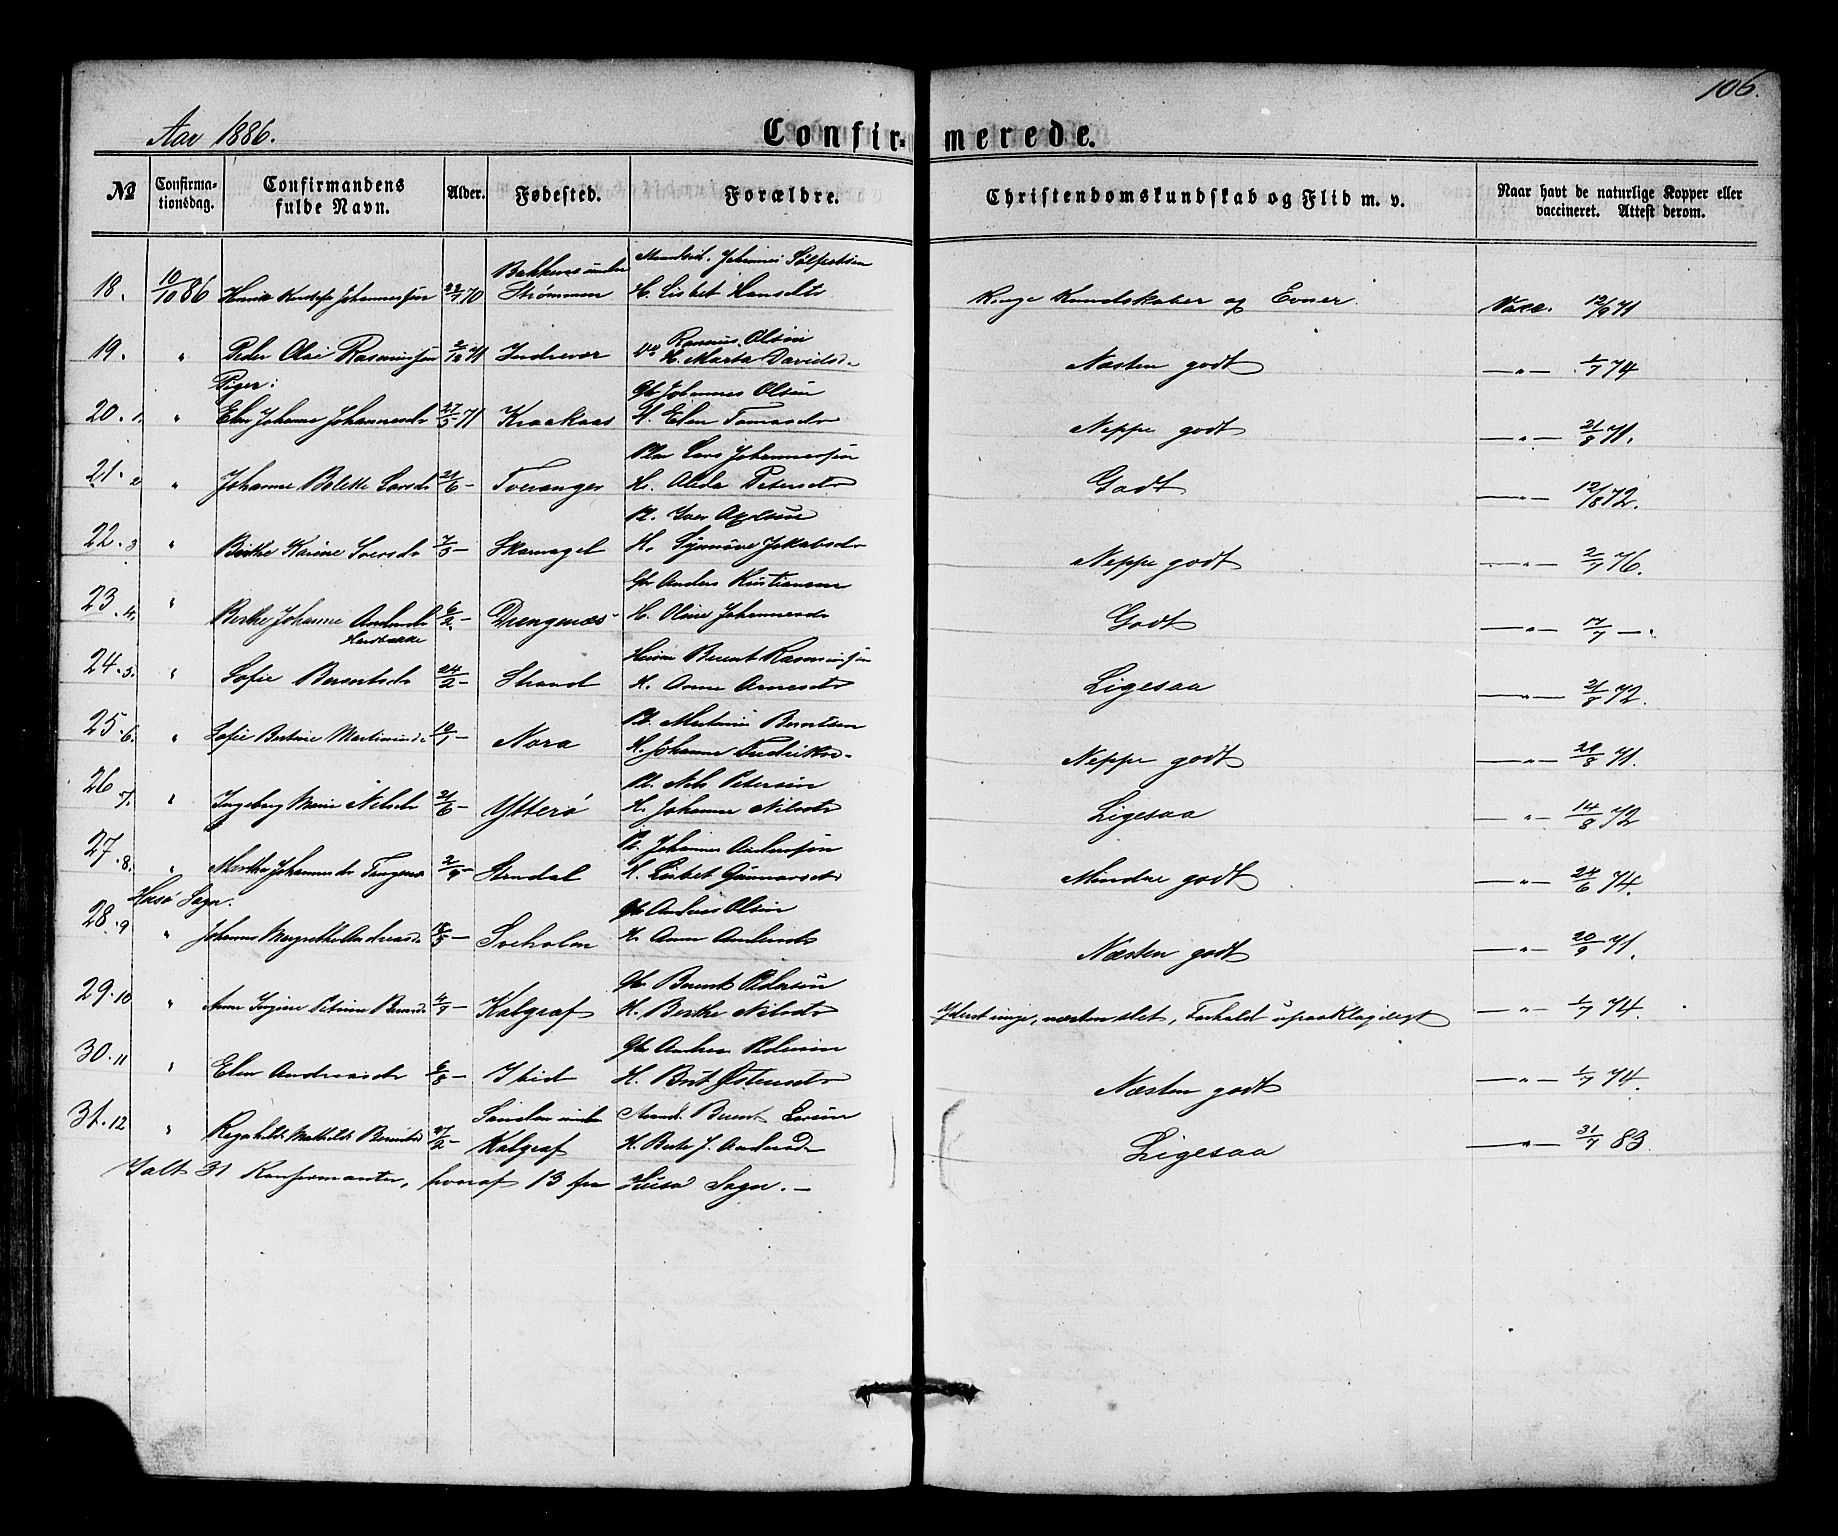 106.
Aar 1886.
Confirmerede.
No
Confirmationsdag.
Confirmandens fulde Navn.
Alder.
Fødested.
Forældre.
Christendomskundskab og Flid m. v.
Naar havt de naturlige Kopper eller vaccineret. Attest derom.
18. 10/10 86 Johannessøn 70 Bakkerne under Strømmen Johannes H. Lisbet Hansdtr Ringe Kundskaber og Evner. Vacc. 12/9 71
19. " Peder Olai Rasmussøn 2/10 71 Indrevær Rasmus Olsen H. Marta Davidsd. Næsten godt —"— 1/7 74
Piger:
20. 1. " Elen Johanne Johannesdr 27/5 71 Kraakaas Gbr Johannes Olsen H. Elen Tomasdr Neppe godt —"— 21/8 71.
21. 2 " Johanne Bolette Larsdr 21/6 — Tveranger Pl. Lars Johannessøn H. Alida Petersdr Godt —"— 12/8 72.
22. 3 " Berthe Karine Iversdr 7/5 — Skarnagel Pl. Iver H. Synnøve Jakobsdr Neppe godt —"— 2/7 76.
23. 4. " Berthe Johanne Andersdr 6/2 — Drengenæs Gbr Anders Kristiansen H. Oline Johannesdr Godt —"— 17/7 — .
24. 5. " Sofie Berentsdr 24/2 — Strand Berent Rasmussøn H. Anne Arnesdr Ligesaa —"— 21/8 72.
25. 6. " Sofie Bertine Martinusdr — Nora Pl. Martinus Berntsen H. Johanne Fredriksd. Neppe godt —"— 21/8 71.
26 7. " Ingeborg Marie Nilsdr 21/6 — Ytterø Pl. Nils Petersen H. Johanne Nilsdr Ligesaa —"— 14/8 72
27. 8. " Johannesdr 2/9 — Strndal Pl. Johannes Anderssøn H. Lisbet Gunnarsdr Mindre godt —"— 24/6 74.
Husø Sogn.
28. 9 " Johanne Margrethe Andreasdr 18/5 — Sveholm Gbr Andreas Olsen H. Anne Andersdr Næsten godt —"— 20/9 71.
29. 10 " Anne Petrine Berentsdr 4/7 — Kalgraf Gbr Berent Pedersøn H. Berthe Nilsdr Yderst ringe, næsten slet, Forhold upaaklageligt —"— 1/7 74.
30. 11 " Elen Andreasdr 6/8 — Ibid Gbr Andreas H. Brit Østensdr Næsten godt —"— 1/7 74.
31. 12 " Mathilde 27/2 — Sanden under Kalgraf Strand. Berent H. Berte J. Andersdr Ligesaa —"— 31/7 83.
Ialt 31 Konfirmanter, hvoraf 13 fra Husø Sogn. —